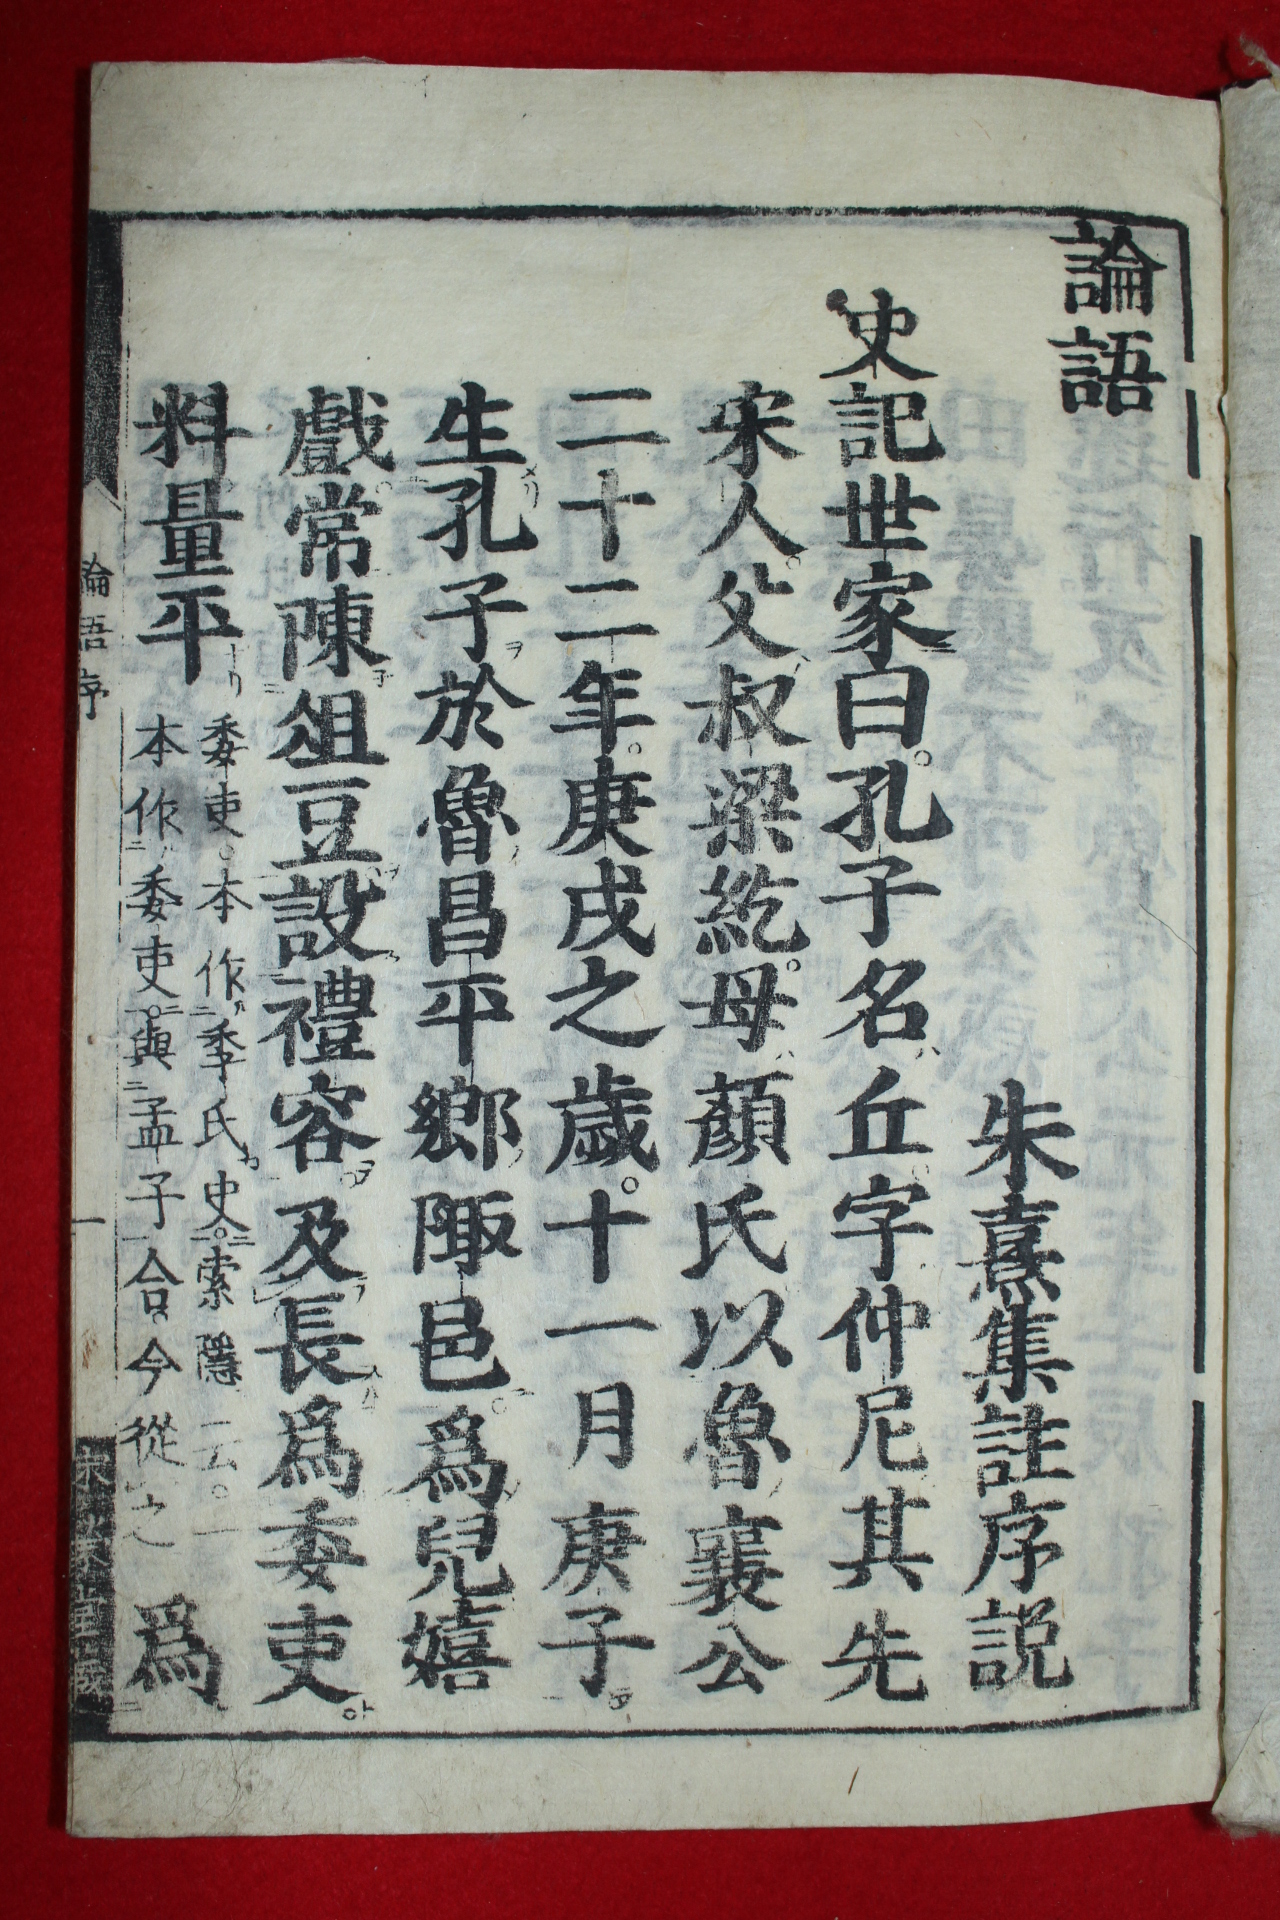 論語
朱熹集註序説
史記世家曰。孔子名丘。字仲尼其先
宋人。父叔梁紇。母顔氏以魯襄公
二十二年。庚戌之歳。十一月庚子。
生孔子於魯昌平鄉陬邑。爲兒嬉
戲。常陳俎豆設禮容。及長爲委吏。
料量平
委吏。本作季氏史。索隱云。一
本作委吏。與孟子合。今從之
爲
論語序
一